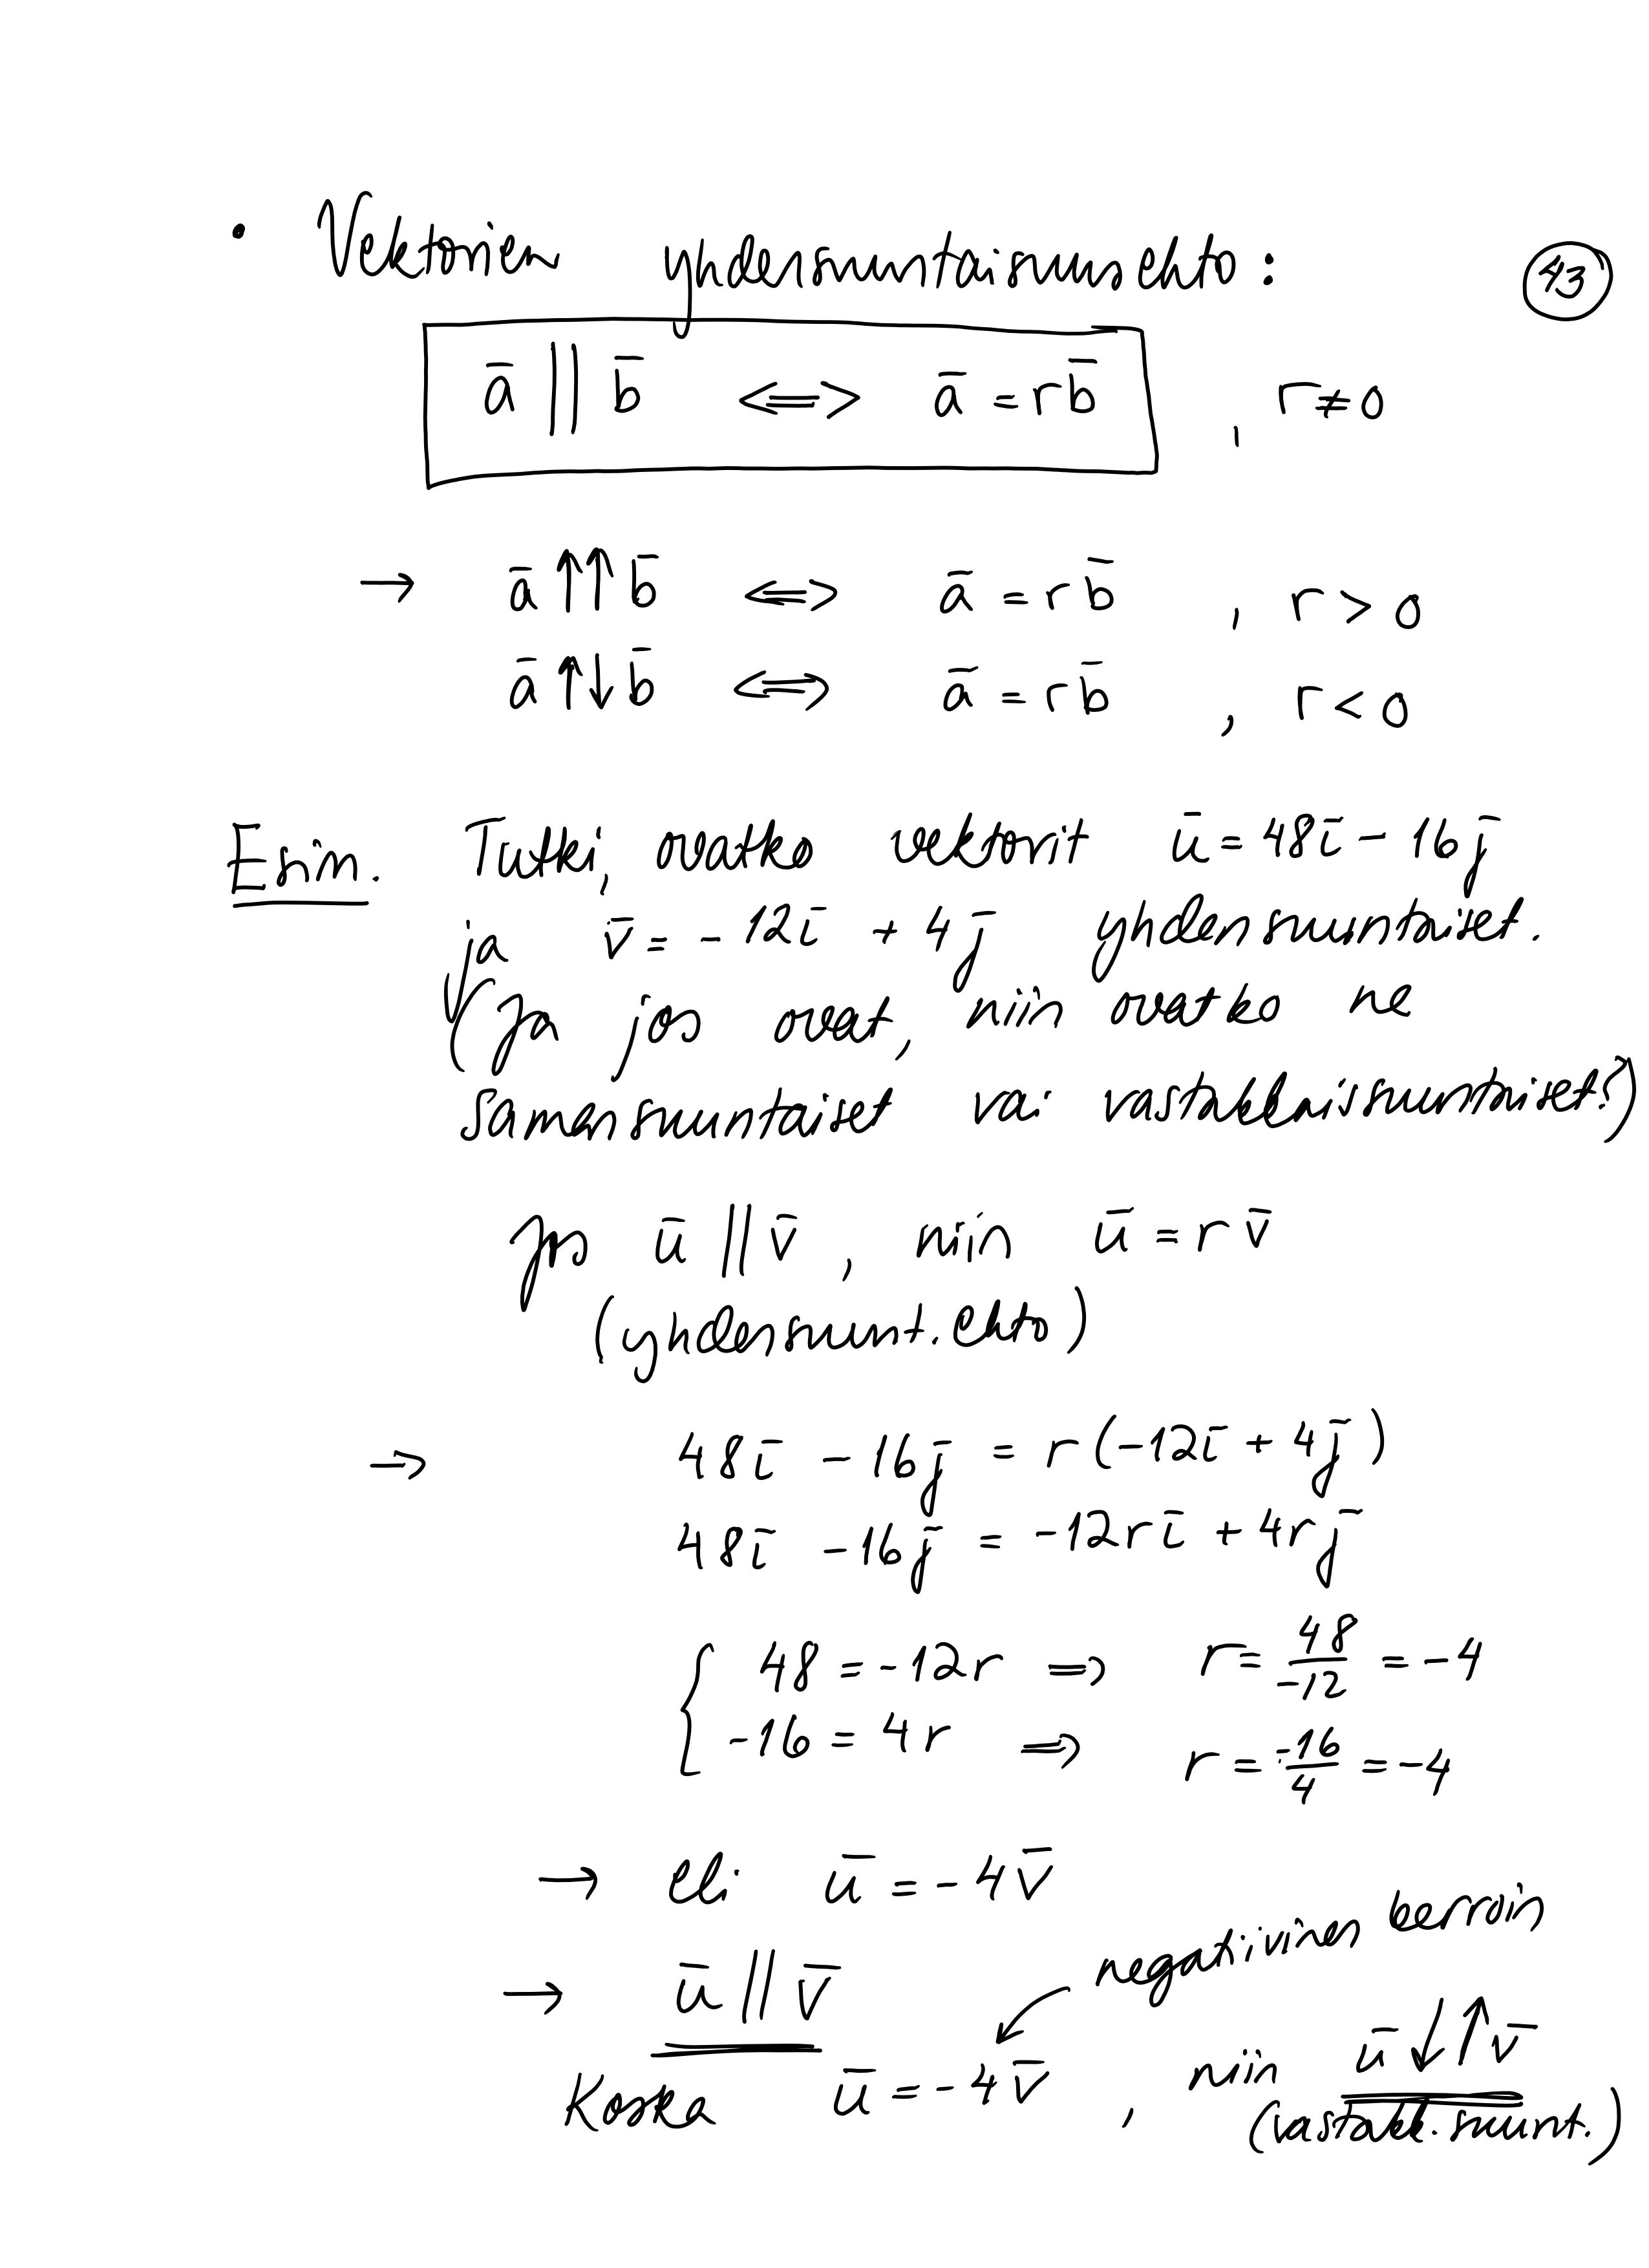 • Vektorien yhdensuuntaisuusehto:
43
ā || b̄ ⟺ ā = rb̄ , r ≠ 0
→ ā ↑↑ b̄ ⟺ ā = rb̄ , r > 0
ā ↑↓ b̄ ⟺ ā = rb̄ , r < 0
Esim. Tutki, ovatko vektorit ū = 48ī - 16j̄
ja v̄ = -12ī + 4j̄ yhdensuuntaiset.
(Ja jos ovat, niin ovatko ne
samansuuntaiset vai vastakkaissuuntaiset?)
Jos ū || v̄ , niin ū = r v̄
(yhdensuunt. ehto)
⇒ 48ī - 16j̄ = r(-12ī + 4j̄)
48ī - 16j̄ = -12rī + 4rj̄
{ 48 = -12r ⇒ r = 48/-12 = -4
-16 = 4r ⇒ r = -16/4 = -4
→ eli ū = -4v̄
negatiivinen kerroin
→ ū || v̄
Koska ū = -4v̄ , niin ū ↓↑ v̄
(vastakk. suunt.)